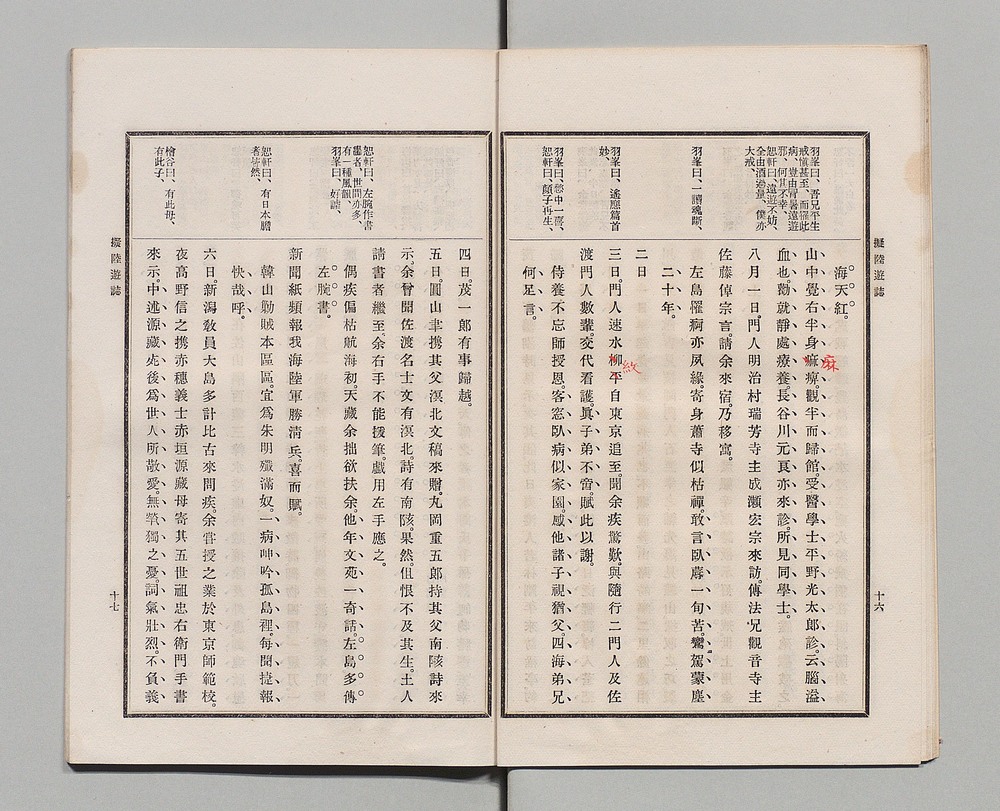 擬陸遊誌
十六
羽峯曰、吾兄平生
戒愼甚至、而罹此
病、豈由冒暑遠遊
邪、何其不幸、
恕軒曰、遠遊不妨、
全由酒過量、僕亦
大戒、
羽峯曰、一讀魂斷、
羽峯曰、遙應篇首
妙、
羽峯曰、愁中一喜、
恕軒曰、顏子再生、
海天紅。
山中覺右半身痲痺。觀半而歸館。受醫學士平野光太郎診。云腦溢
麻
血也。勸就靜處療養。長谷川元良亦來診。所見同學士。
八月一日。門人明治村瑞芳寺主成瀨宏宗來訪。傳法兄觀音寺主
佐藤倬宗言。請余來宿。乃移寓。
左島罹痾亦夙緣。寄身蕭寺似枯禪。敢言臥蓐一旬苦。鸞駕蒙塵
二十年。
二日
三日。門人速水柳平自東京追至。聞余疾驚歎。與隨行二門人及佐
渡門人數輩。交代看護。眞子弟不啻。賦此以謝。
侍養不忘師授恩。客窓臥病似家園。感他諸子視猶父。四海弟兄
何足言。
四日。茂一郎有事歸越。
五日。圓山聿携其父溟北文稿來贈。丸岡重五郎持其父南陔詩來
示。余曾聞佐渡名士文有溟北。詩有南陔。果然。但恨不及其生。土人
請書者繼至。余右手不能援筆。戲用左手應之。
偶疾偏枯航海初。天藏余拙欲扶余。他年文苑一奇話。左島多傳
左腕書。
新聞紙頻報我海陸軍勝淸兵。喜而賦。
韓山勦賊本區區。宜爲朱明殲滿奴。一病呻吟孤島裡。每聞捷報
快哉呼。
六日。新潟敎員大島多計比古來問疾。余嘗授之業於東京師範校。
夜高野信之携赤穗義士赤垣源藏母寄其五世祖忠右衛門手書
來示。中述源藏死後爲世人所敬愛。無煢獨之憂。詞氣壯烈。不負義
恕軒曰、左腕作書
靈者、世間亦多、
有一種風韻、
羽峯曰、好謔、
恕軒曰、有日本膽
者皆然、
檜谷曰、有此母、
有此子、
擬陸遊誌
十七